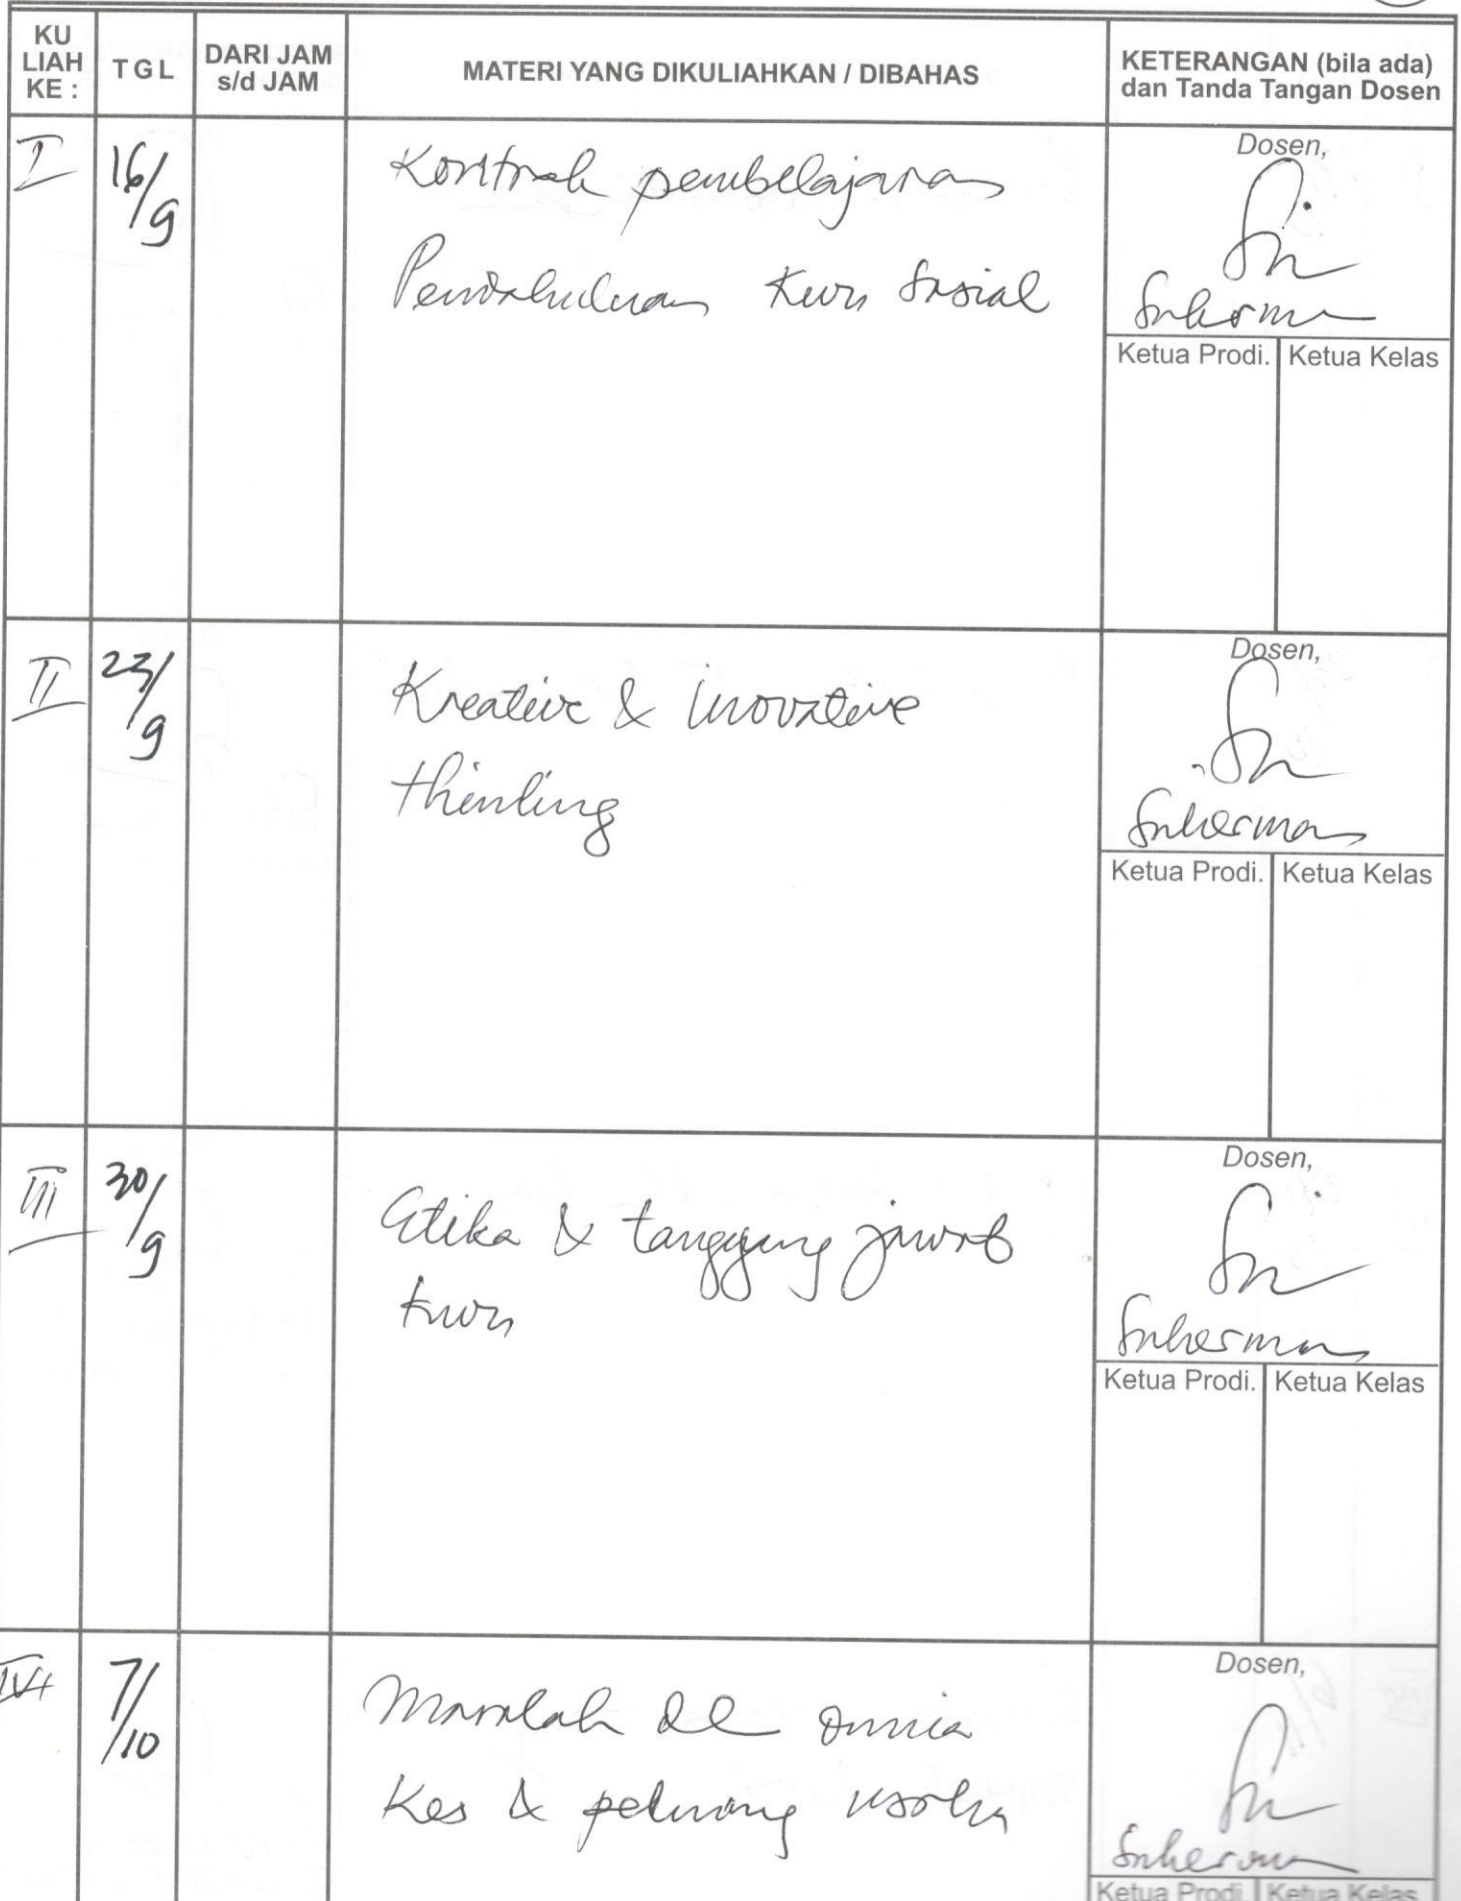 KU
LIAH
KE :
TGL
DARI JAM
s/d JAM
MATERI YANG DIKULIAHKAN / DIBAHAS
KETERANGAN (bila ada)
dan Tanda Tangan Dosen
I
16/9
Kontrak pembelajaran
Pendahuluan Kwn Sosial
Dosen,
Suherman
Ketua Prodi. Ketua Kelas
II
23/9
Kreative & inovative
thinking
Dosen,
Suherman
Ketua Prodi. Ketua Kelas
III
30/9
Etika & tanggung jawab
kwn
Dosen,
Suherman
Ketua Prodi. Ketua Kelas
IV
7/10
Masalah dl dunia
Kes & peluang usaha
Dosen,
Suherman
Ketua Prodi. Ketua Kelas